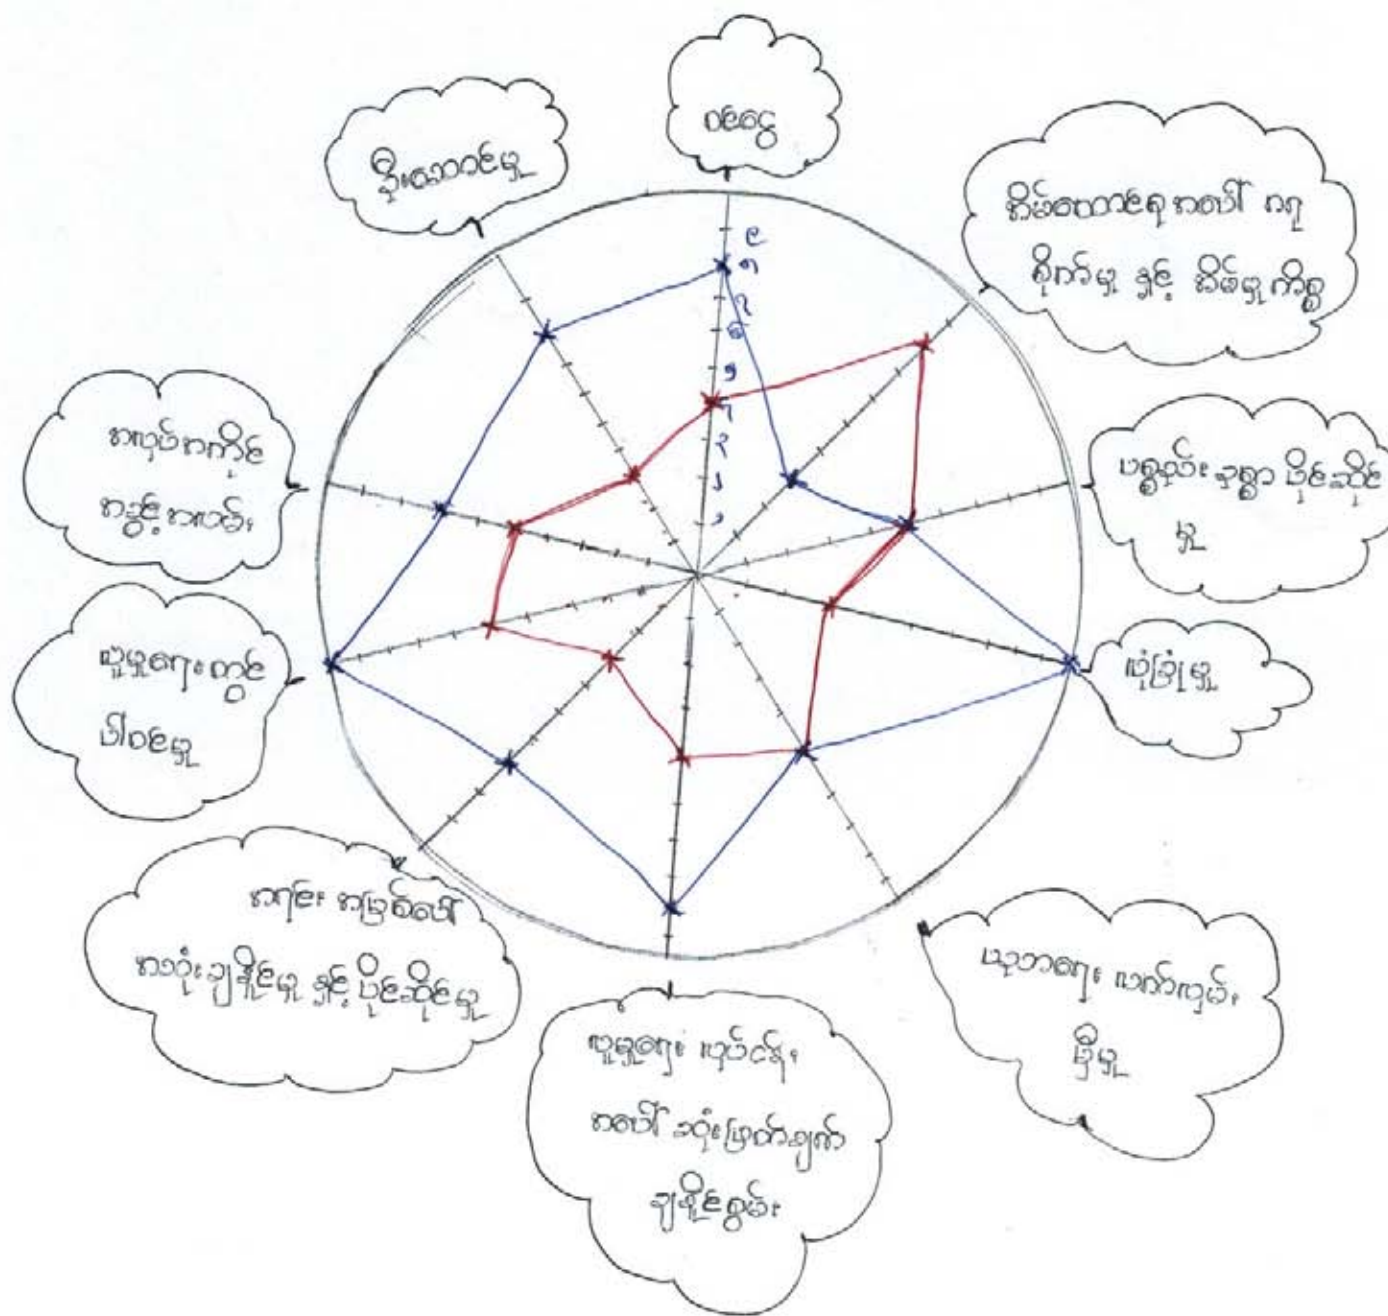 ဝင်ငွေ
အိမ်ထောင်စု အပေါ် ဂရု
စိုက်မှု နှင့် အိမ်မှုကိစ္စ
ပစ္စည်း ဥစ္စာ ပိုင်ဆိုင်
မှု
လုံခြုံမှု
ပညာရေး လက်လှမ်း
မှီမှု
လူမှုရေး လုပ်ငန်း
အပေါ် ဆုံးဖြတ်ချက်
ချနိုင်စွမ်း
အရင်း အမြစ်ပေါ်
အသုံးချနိုင်မှု နှင့် ပိုင်ဆိုင်မှု
လူမှုရေး တွင်
ပါဝင်မှု
အလုပ်အကိုင်
အခွင့် အလမ်း
ဦးဆောင်မှု
၉
၈
၇
၆
၅
၄
၃
၂
၁